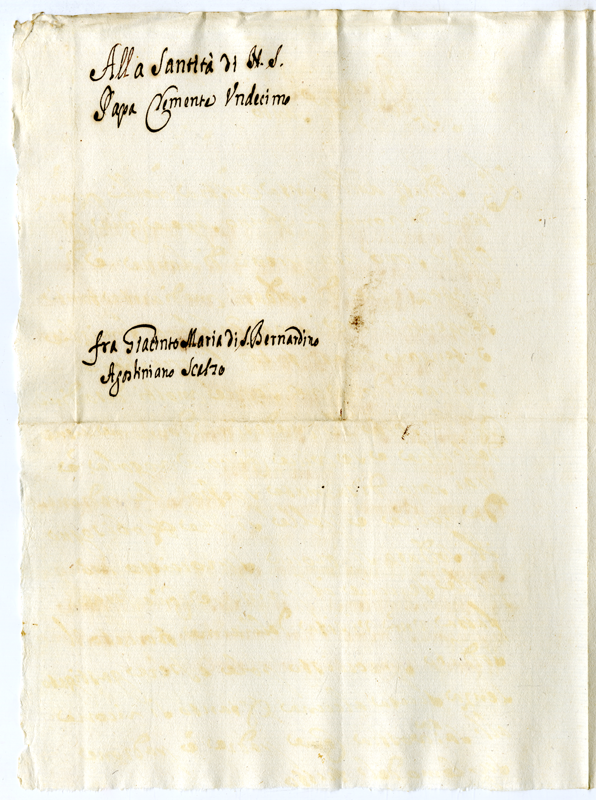 Alla Santità di N. S.
Papa Clemente Vndecimo
fra Giacinto Maria di S. Bernardino
Agostiniano Scalzo